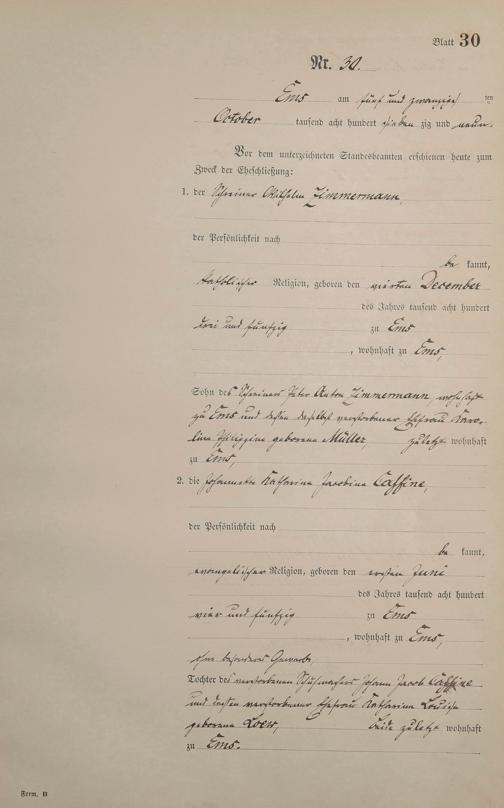 Blatt 30
Nr. 30.
Ems am fünf und zwanzigsten
October tausend acht hundert sieben zig und neun.
Vor dem unterzeichneten Standesbeamten erschienen heute zum
Zweck der Eheschließung:
1. der Schreiner Wilhelm Zimmermann,
der Persönlichkeit nach
be kannt,
katholischer Religion, geboren den vierten December
des Jahres tausend acht hundert
drei und fünfzig zu Ems
, wohnhaft zu Ems,
Sohn des Schreiners Peter Anton Zimmermann, wohnhaft
zu Ems und dessen daselbst verstorbener Ehefrau Karo-
line geborene Müller, zuletzt wohnhaft
zu Ems,
2. die Johannette Katharina Jacobina Caffine,
der Persönlichkeit nach
be kannt,
evangelischer Religion, geboren den ersten Juni
des Jahres tausend acht hundert
vier und fünfzig zu Ems
, wohnhaft zu Ems,
ohne besonderes Gewerbe,
Tochter des verstorbenen Schuhmachers Johann Jacob Caffine
und dessen verstorbener Ehefrau Katharina Louise
geborene Loew, beide zuletzt wohnhaft
zu Ems.
Form. B